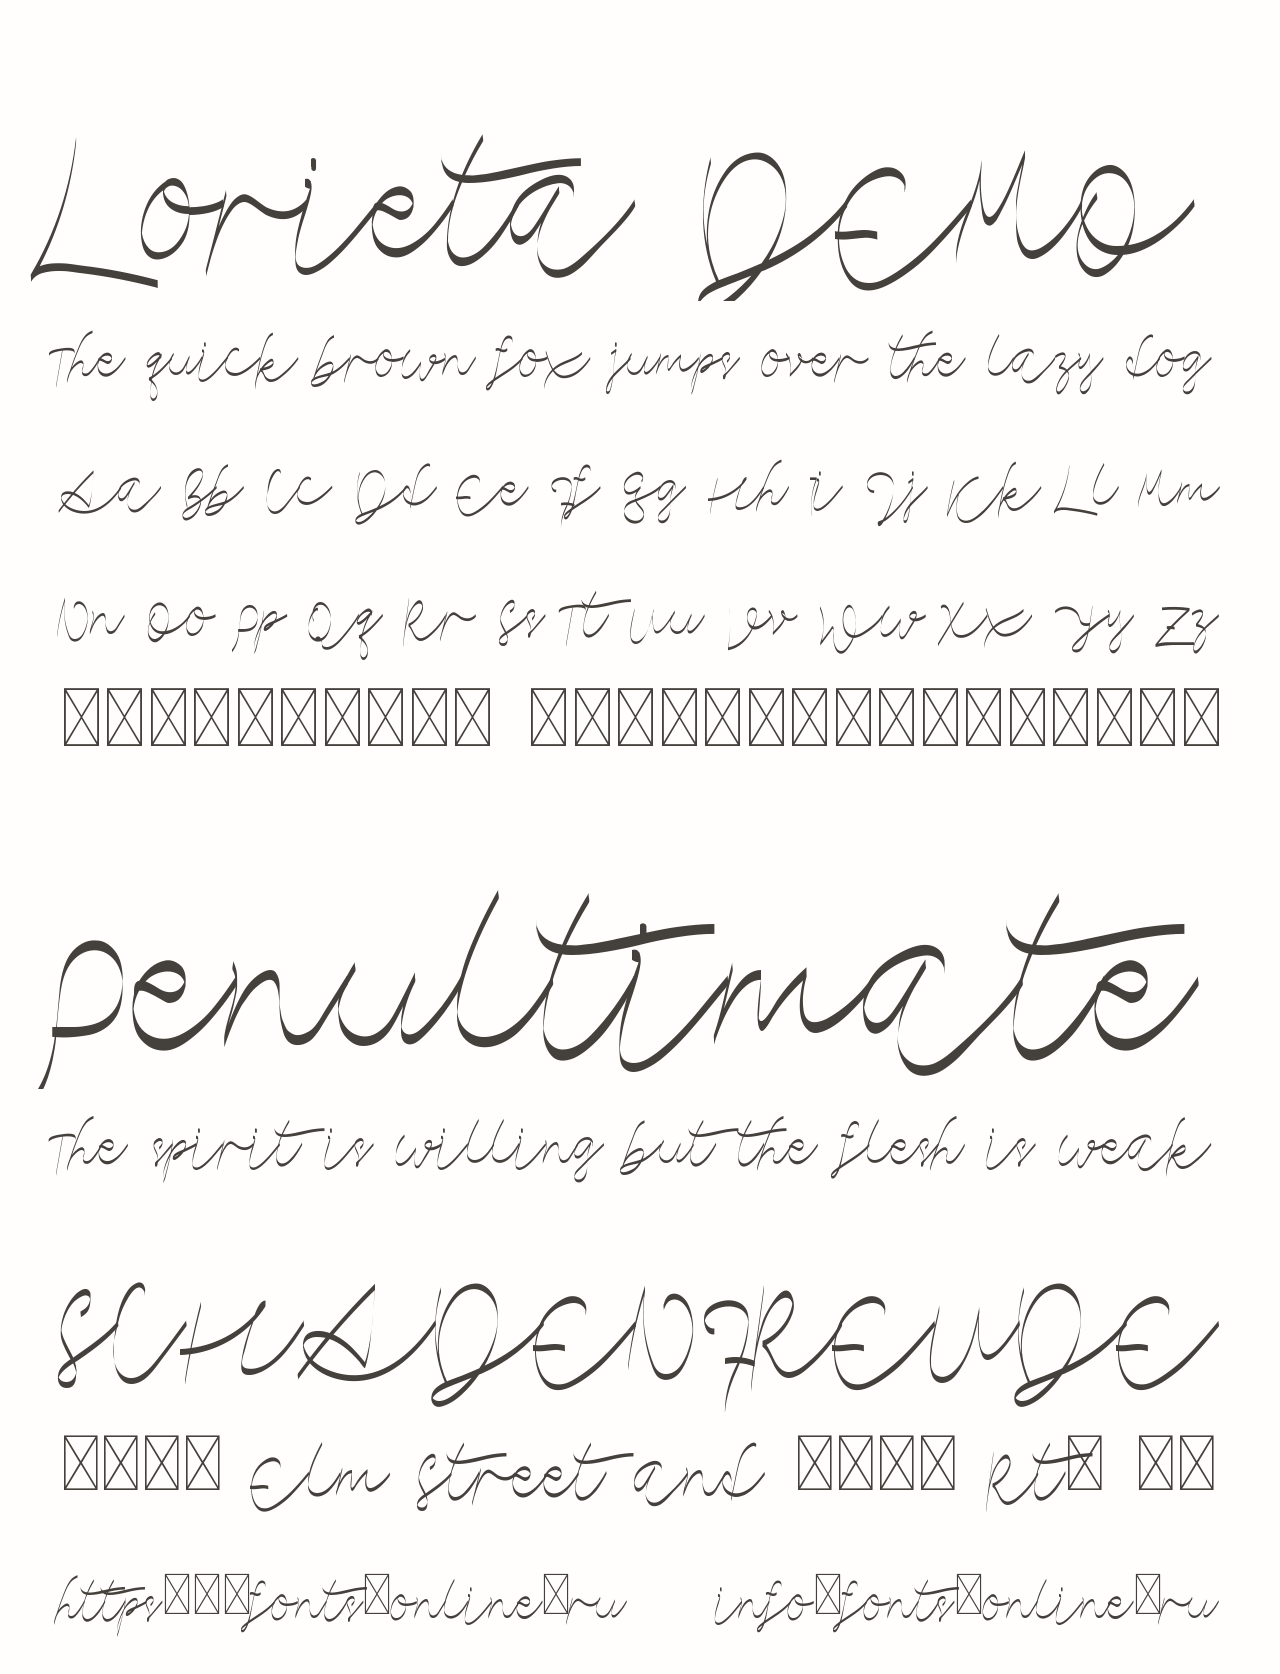 Lorieta DEMO
The quick brown fox jumps over the lazy dog
Aa Bb Cc Dd Ee Ff Gg Hh Ii Jj Kk Ll Mm
Nn Oo Pp Qq Rr Ss Tt Uu Vv Ww Xx Yy Zz
Penultimate
The spirit is willing but the flesh is weak
SCHADENFREUDE
Elm Street and Rt
https fonts online ru info fonts online ru